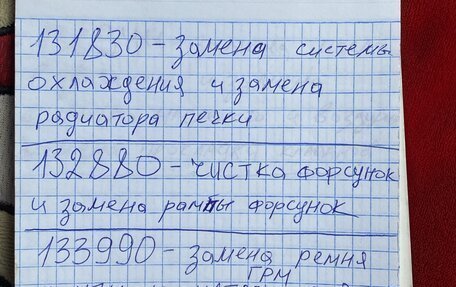 131830 - замена системы
охлаждения и замена
радиатора печки
132880 - чистка форсунок
и замена рампы форсунок
133990 - замена ремня
ГРМ